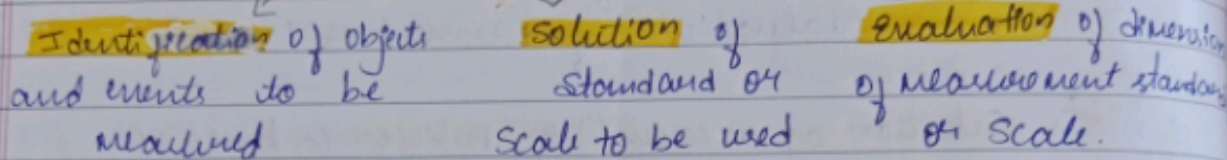 Identification of objects
and events to be
measured
solution of
standard or
scale to be used
Evaluation of dimension
of measurement standard
or scale.